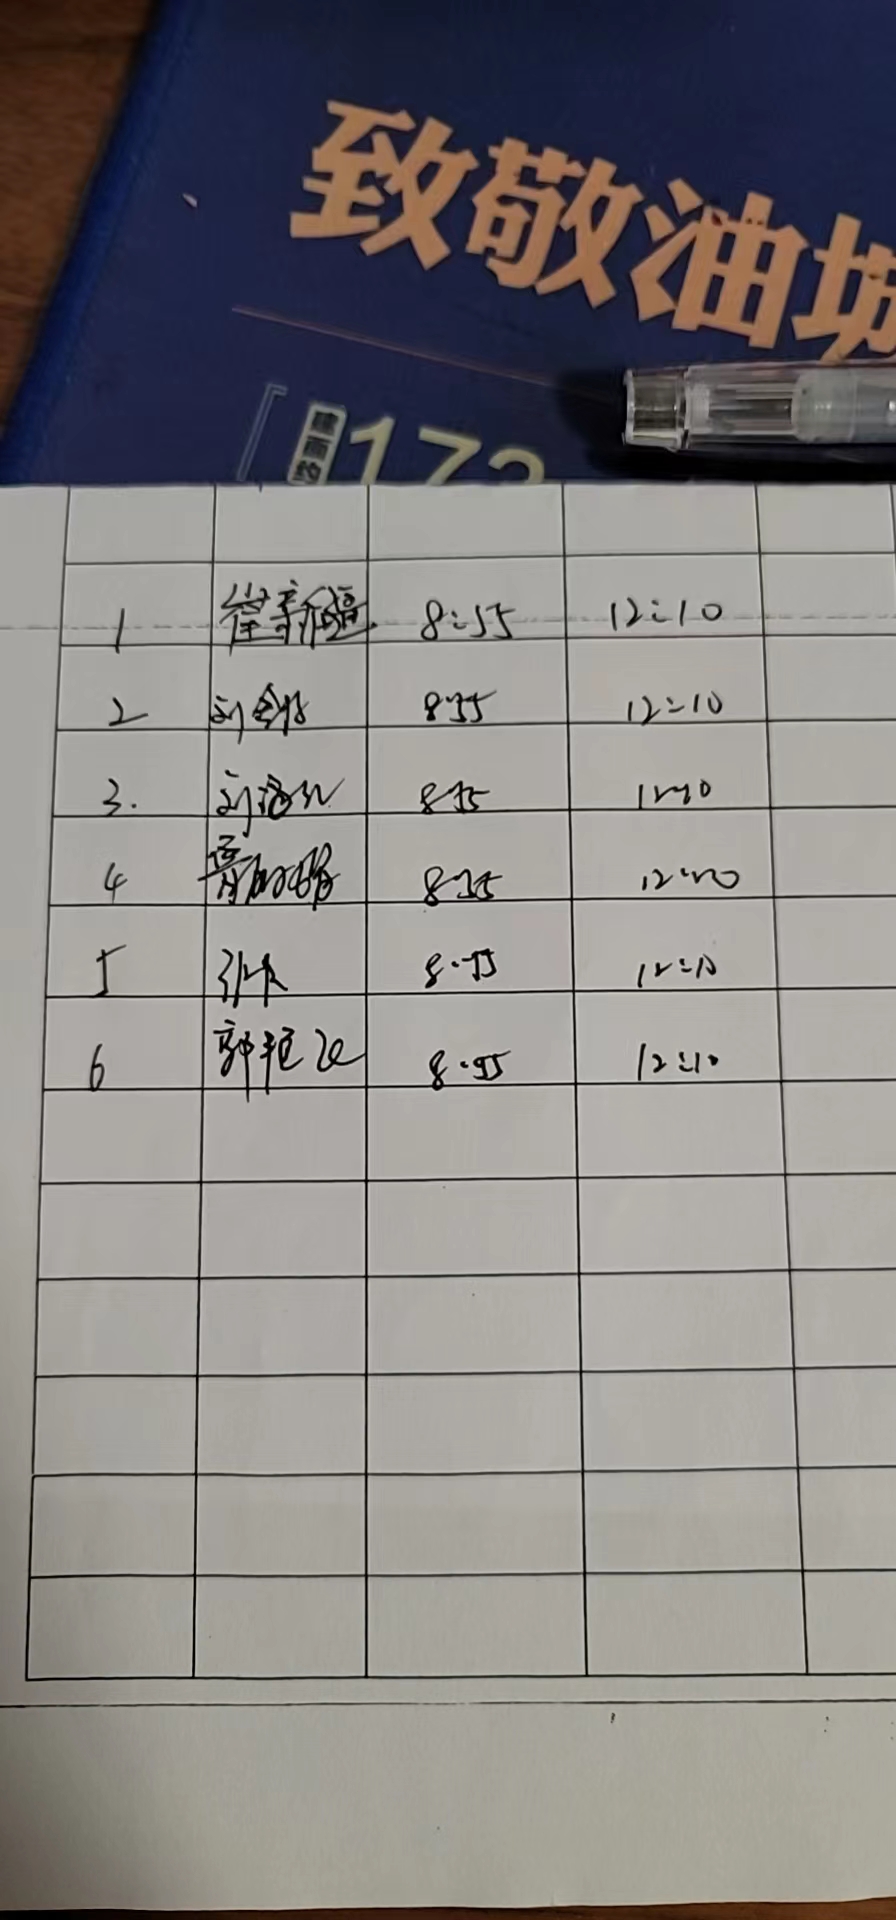 致敬油坊
建面约173
1 崔新疆 8:55 12:10
2 刘 8:55 12:10
3. 刘 8:55 12:10
4 8:55
5 张 8:55 12:10
6 郭 飞 8:55 12:10